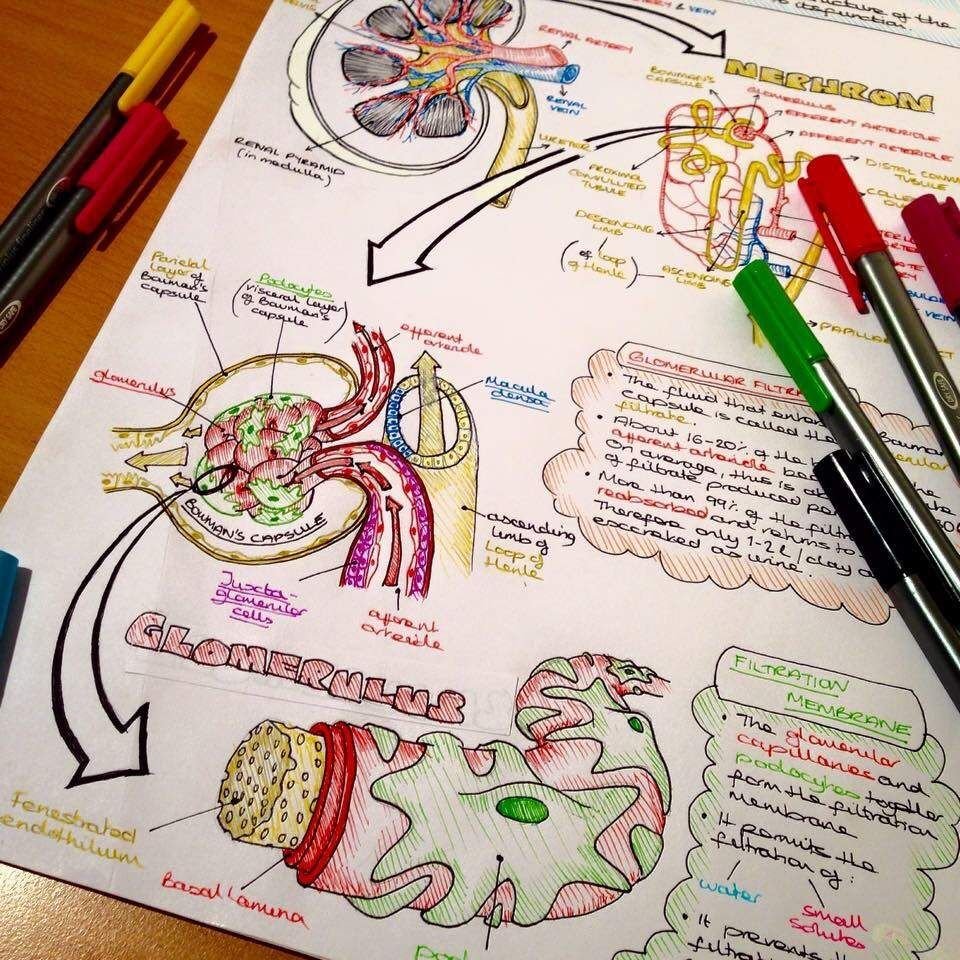 ructure of the
disfunction.
& VEIN
RENAL ARTERY
RENAL
VEIN
URETER
RENAL PYRAMID
(in medulla)
NEPHRON
BOWMAN'S
CAPSULE
GLOMERULUS
EFFERENT ARTERIOLE
AFFERENT ARTERIOLE
DISTAL CONVO
TUBULE
PROXIMAL
CONVOLUTED
TUBULE
DESCENDING
LIMB
(of loop
of Henle)
ASCENDING
LIMB
VEIN
PAPILLA
Parietal
layer of
Bowman's
capsule
Podocytes
(visceral layer
of Bowman's
capsule)
efferent
arteriole
glomerulus
Macula
densa
BOWMAN'S CAPSULE
ascending
limb of
Loop of
Henle
Juxta-
glomerular
cells
afferent
arteriole
GLOMERULAR FILTRA
• The fluid that ent
capsule is called the
filtrate.
• About 16-20% of the
afferent arteriole
On average, this is
of filtrate produced
• More than 99% of the filtr
reabsorbed and returns to
Therefore only 1-2L/day
excreted as urine.
GLOMERULUS
Fenestrated
endothelium
Basal Lamina
pod
FILTRATION
MEMBRANE
• The glomerular
capillaries and
podocytes together
form the filtration
membrane
• It permits the
filtration of:
water
small
solutes
• It prevents